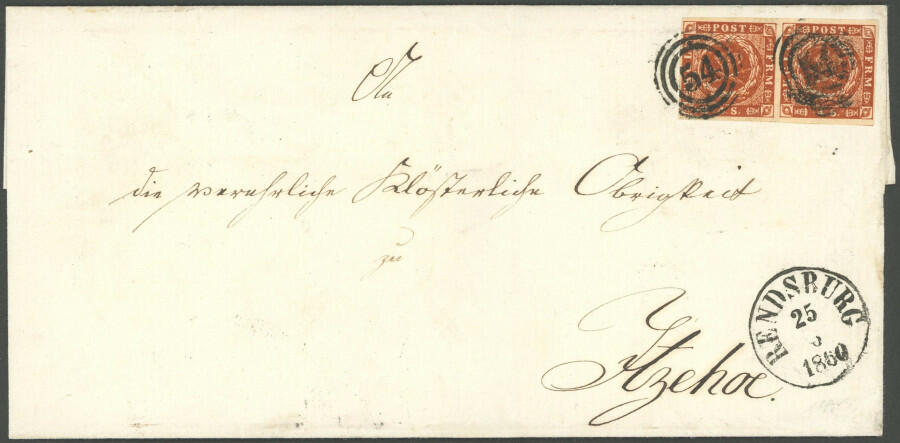 POST POST
FRM FRM
S. S.
54
An
die verehrliche Klösterliche Obrigkeit
zu
Itzehoe.
RENDSBURG
25
1860